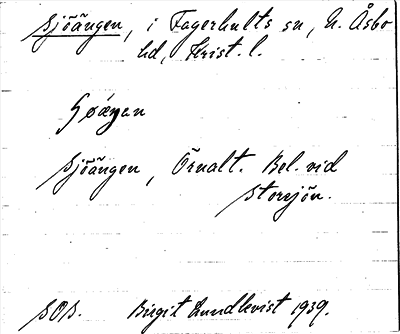 Sjöängen, i Fagerhults sn, N. Åsbo
hd, Krist. l.
Sjöängen, Örnalt. Bel. vid
Storsjön.
SOB. Birgit Lundkvist 1939.